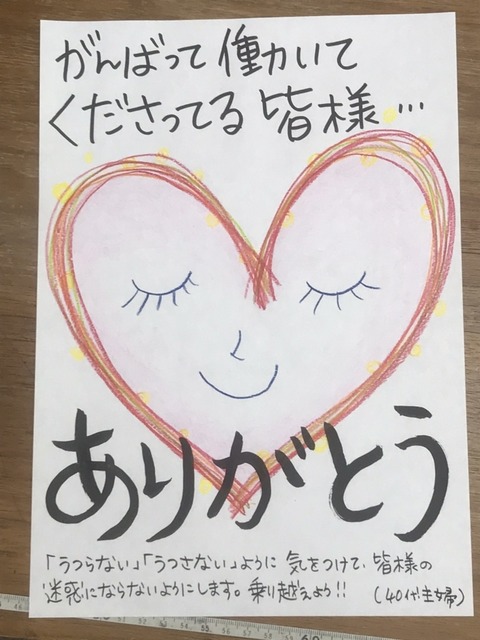 がんばって働いて
くださってる皆様…
ありがとう
「うつらない」「うつさない」ように 気をつけて、皆様の
迷惑にならないようにします。乗り越えよう!!
（40代主婦）